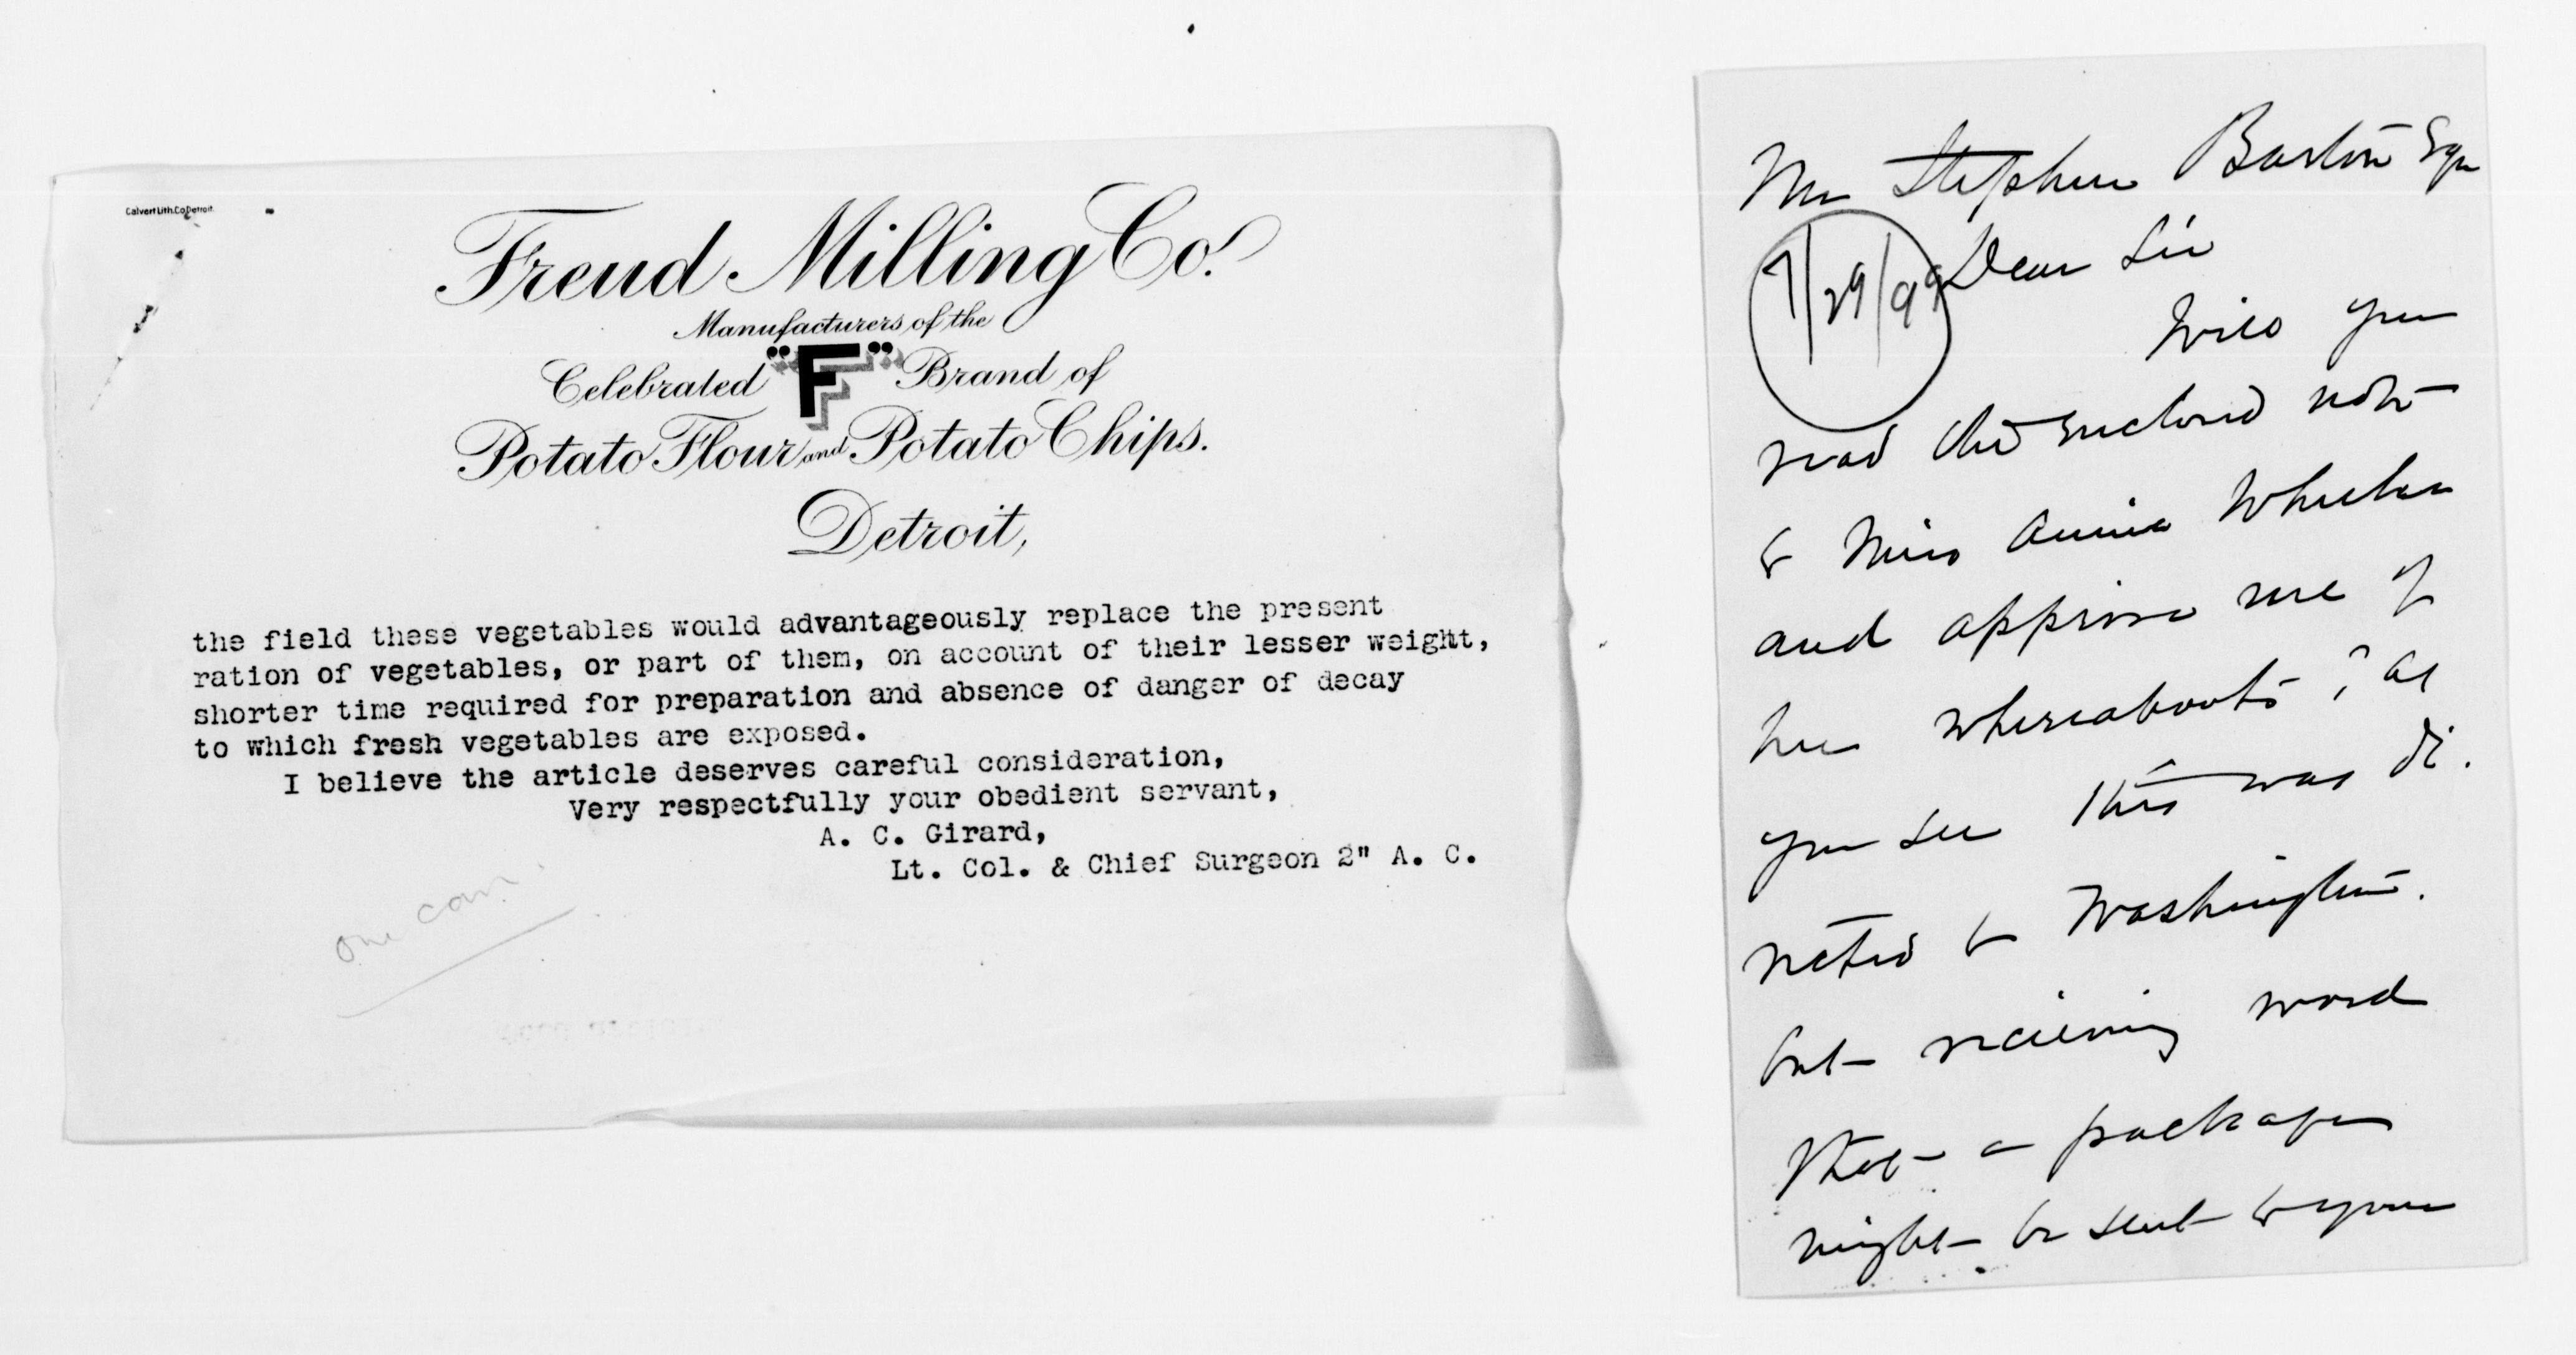 Calvert Lith. Co. Detroit.
Freud Milling Co.
Manufacturers of the
Celebrated "F" Brand of
Potato Flour and Potato Chips.
Detroit,
the field these vegetables would advantageously replace the present
ration of vegetables, or part of them, on account of their lesser weight,
shorter time required for preparation and absence of danger of decay
to which fresh vegetables are exposed.
I believe the article deserves careful consideration,
Very respectfully your obedient servant,
A. C. Girard,
Lt. Col. & Chief Surgeon 2" A. C.
one can
Mr Stephen Barton Esqr
7/29/99
Dear Sir
Will you
read the enclosed note
to Miss Annie Wheeler
and apprise me of
her whereabouts? as
you see this was di-
rected to Washington.
but receiving word
that a package
might be sent to your